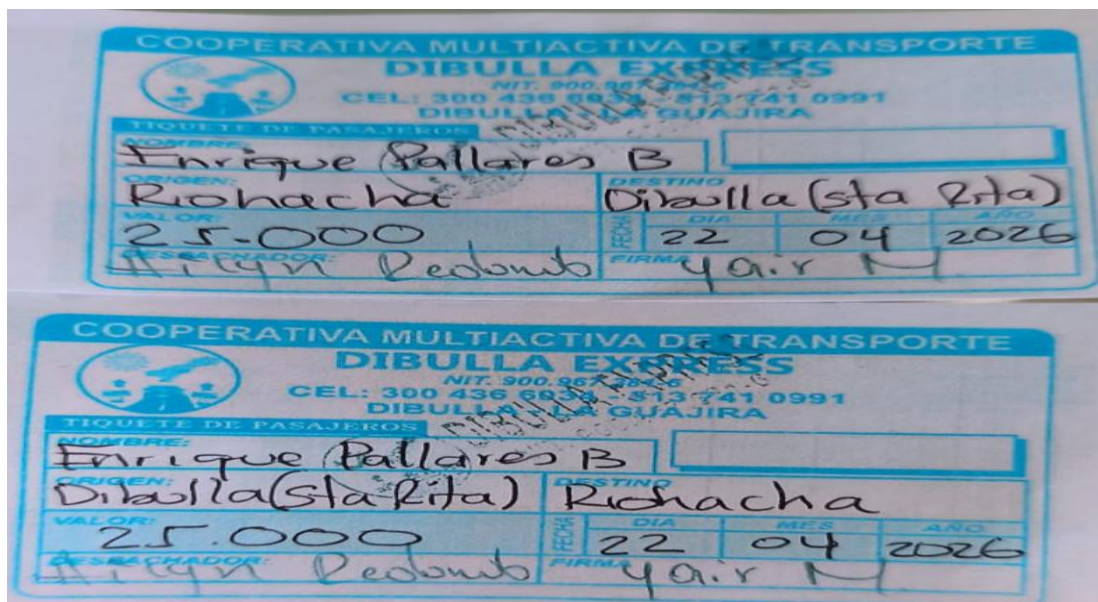 COOPERATIVA MULTIACTIVA DE TRANSPORTE
DIBULLA EXPRESS
NIT. 900.967
CEL: 300 436 313 741 0991
DIBULLA LA GUAJIRA
TIQUETE DE PASAJEROS
NOMBRE: Enrique Pallares B
ORIGEN: Riohacha DESTINO Dibulla (sta Rita)
VALOR: 25.000 FECHA DIA 22 MES 04 AÑO 2026
DESPACHADOR: Ailyn Redondo FIRMA Yair M
COOPERATIVA MULTIACTIVA DE TRANSPORTE
DIBULLA EXPRESS
NIT. 900.967
CEL: 300 436 313 741 0991
DIBULLA LA GUAJIRA
TIQUETE DE PASAJEROS
NOMBRE: Enrique Pallares B
ORIGEN: Dibulla (sta Rita) DESTINO Riohacha
VALOR: 25.000 FECHA DIA 22 MES 04 AÑO 2026
DESPACHADOR: Ailyn Redondo FIRMA Yair M